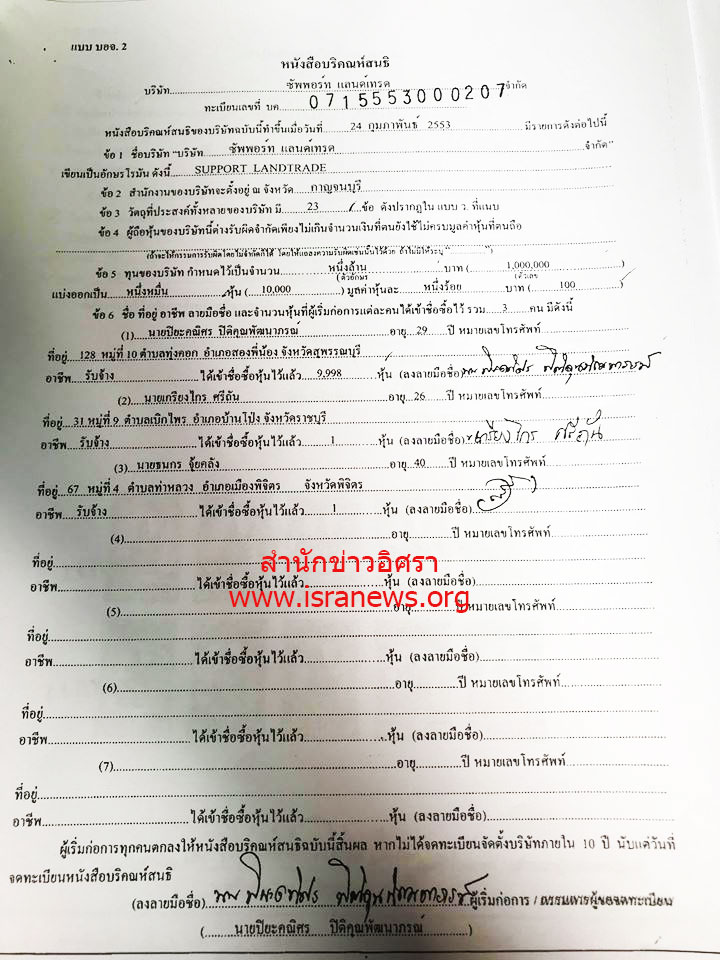 แบบ บอจ. 2
หนังสือบริคณห์สนธิ
บริษัท ซัพพอร์ท แลนด์เทรด จำกัด
ทะเบียนเลขที่ บค 0715553000207
หนังสือบริคณห์สนธิของบริษัทฉบับนี้ทำขึ้นเมื่อวันที่ 24 กุมภาพันธ์ 2553 มีรายการดังต่อไปนี้
ข้อ 1 ชื่อบริษัท "บริษัท ซัพพอร์ท แลนด์เทรด จำกัด"
เขียนเป็นอักษรโรมัน ดังนี้ SUPPORT LANDTRADE
ข้อ 2 สำนักงานของบริษัทจะตั้งอยู่ ณ จังหวัด กาญจนบุรี
ข้อ 3 วัตถุที่ประสงค์ทั้งหลายของบริษัท มี 23 ข้อ ดังปรากฏใน แบบ ว. ที่แนบ
ข้อ 4 ผู้ถือหุ้นของบริษัทนี้ต่างรับผิดจำกัดเพียงไม่เกินจำนวนเงินที่ตนยังใช้ไม่ครบมูลค่าหุ้นที่ตนถือ
(ถ้าจะให้กรรมการรับผิดโดยไม่จำกัดก็ได้ โดยให้แถลงความรับผิดเช่นนั้นไว้ด้วย ถ้าไม่มีให้ระบุ "-")
ข้อ 5 ทุนของบริษัท กำหนดไว้เป็นจำนวน หนึ่งล้าน บาท ( 1,000,000 )
(ตัวอักษร) ตัวเลข
แบ่งออกเป็น หนึ่งหมื่น หุ้น ( 10,000 ) มูลค่าหุ้นละ หนึ่งร้อย บาท ( 100 )
ข้อ 6 ชื่อ ที่อยู่ อาชีพ ลายมือชื่อ และจำนวนหุ้นที่ผู้เริ่มก่อการแต่ละคนได้เข้าชื่อซื้อไว้ รวม 3 คน มีดังนี้
(1) นายปิยะคณิศร ปิติคุณพัฒนาภรณ์ อายุ 29 ปี หมายเลขโทรศัพท์
ที่อยู่ 128 หมู่ที่ 10 ตำบลทุ่งคอก อำเภอสองพี่น้อง จังหวัดสุพรรณบุรี
อาชีพ รับจ้าง ได้เข้าชื่อซื้อหุ้นไว้แล้ว 9,998 หุ้น (ลงลายมือชื่อ)
(2) นายเกรียงไกร ศรีถัน อายุ 26 ปี หมายเลขโทรศัพท์
ที่อยู่ 31 หมู่ที่ 9 ตำบลเบิกไพร อำเภอบ้านโป่ง จังหวัดราชบุรี
อาชีพ รับจ้าง ได้เข้าชื่อซื้อหุ้นไว้แล้ว 1 หุ้น (ลงลายมือชื่อ) เกรียงไกร ศรีถัน
(3) นายธนกร จุ้ยคลัง อายุ 40 ปี หมายเลขโทรศัพท์
ที่อยู่ 67 หมู่ที่ 4 ตำบลท่าหลวง อำเภอเมืองพิจิตร จังหวัดพิจิตร
อาชีพ รับจ้าง ได้เข้าชื่อซื้อหุ้นไว้แล้ว 1 หุ้น (ลงลายมือชื่อ)
(4) อายุ ปี หมายเลขโทรศัพท์
ที่อยู่
สำนักข่าวอิศรา
อาชีพ ได้เข้าชื่อซื้อหุ้นไว้แล้ว หุ้น (ลงลายมือชื่อ)
www.isranews.org
(5) อายุ ปี หมายเลขโทรศัพท์
ที่อยู่
อาชีพ ได้เข้าชื่อซื้อหุ้นไว้แล้ว หุ้น (ลงลายมือชื่อ)
(6) อายุ ปี หมายเลขโทรศัพท์
ที่อยู่
อาชีพ ได้เข้าชื่อซื้อหุ้นไว้แล้ว หุ้น (ลงลายมือชื่อ)
(7) อายุ ปี หมายเลขโทรศัพท์
ที่อยู่
อาชีพ ได้เข้าชื่อซื้อหุ้นไว้แล้ว หุ้น (ลงลายมือชื่อ)
ผู้เริ่มก่อการทุกคนตกลงให้หนังสือบริคณห์สนธิฉบับนี้สิ้นผล หากไม่ได้จดทะเบียนจัดตั้งบริษัทภายใน 10 ปี นับแต่วันที่
จดทะเบียนหนังสือบริคณห์สนธิ
(ลงลายมือชื่อ) ผู้เริ่มก่อการ / กรรมการผู้ขอจดทะเบียน
( นายปิยะคณิศร ปิติคุณพัฒนาภรณ์ )